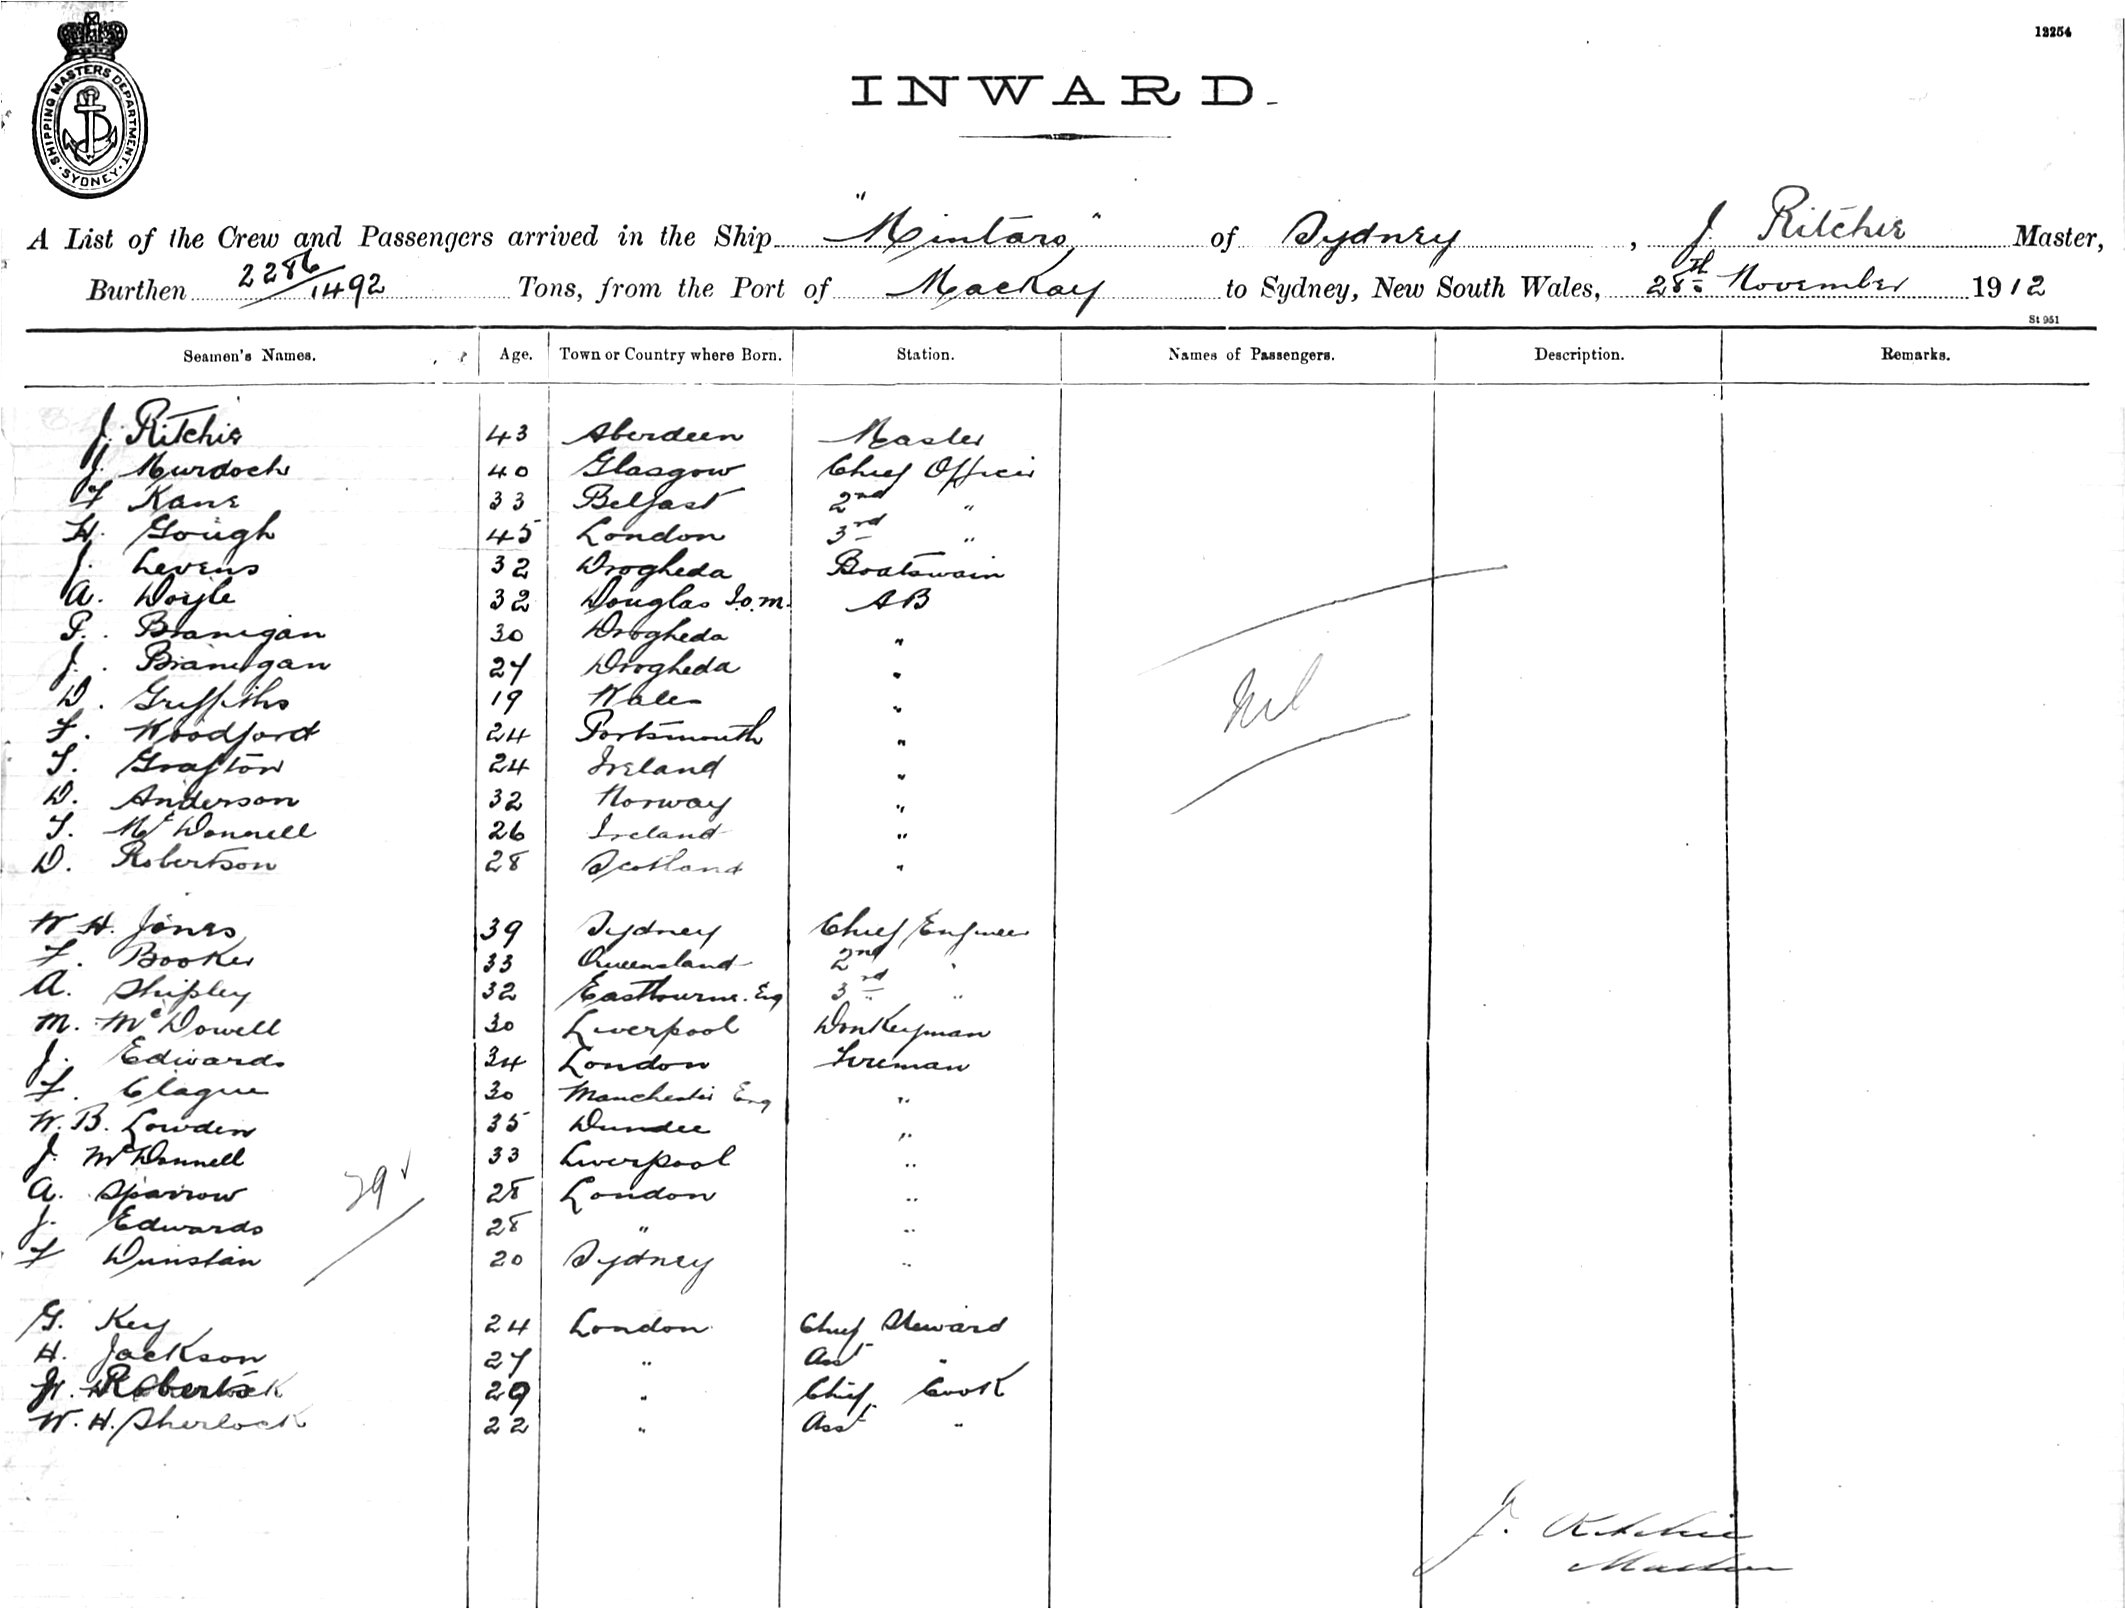 12254
SHIPPING MASTERS DEPARTMENT
SYDNEY
INWARD.
A List of the Crew and Passengers arrived in the Ship "Mintaro" of Sydney, J. Ritchie Master,
Burthen 2286/1492 Tons, from the Port of Mackay to Sydney, New South Wales, 28th November 1912
St 951
Seamen's Names. Age. Town or Country where Born. Station. Names of Passengers. Description. Remarks.
J. Ritchie 43 Aberdeen Master
J. Murdoch 40 Glasgow Chief Officer
F Kane 33 Belfast 2nd "
H. Gough 45 London 3rd "
J. Levens 32 Drogheda Boatswain
A. Doyle 32 Douglas I.o.m. AB
P. Branigan 30 Drogheda "
J. Branigan 27 Drogheda "
D. Griffiths 19 Wales "
F. Woodford 24 Portsmouth "
T. Grafton 24 Ireland "
D. Anderson 32 Norway "
T. McDonnell 26 Ireland "
D. Robertson 28 Scotland "
Nil
W H. Jones 39 Sydney Chief Engineer
F. Booker 33 Queensland 2nd "
A. Shipley 32 Eastbourne. Eng 3rd "
M. McDowell 30 Liverpool Donkeyman
J. Edwards 34 London Fireman
F. Clague 30 Manchester Eng "
W. B. Lowden 35 Dundee "
J. McDonnell 33 Liverpool "
A. Sparrow 28 London "
J. Edwards 28 " "
F Dunstan 20 Sydney "
29
G. Key 24 London Chief Steward
H. Jackson 27 " Asst "
29 " Chief Cook
W. H. Sherlock 22 " Asst "
J. Ritchie
Master